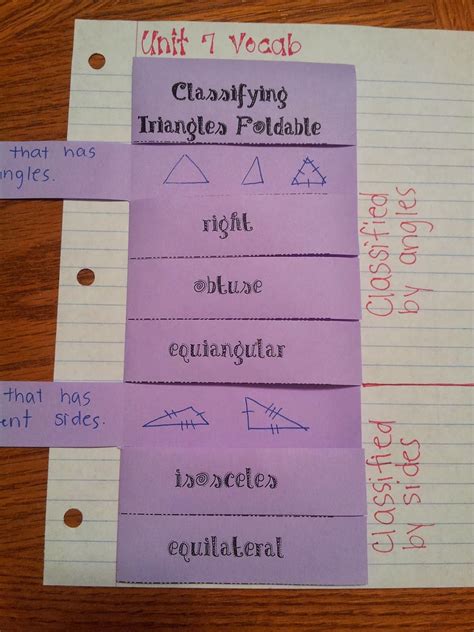 Unit 7 Vocab
Classifying
Triangles Foldable
that has
ngles.
right
obtuse
equiangular
Classified
by angles
that has
ent sides.
isosceles
equilateral
Classified
by sides